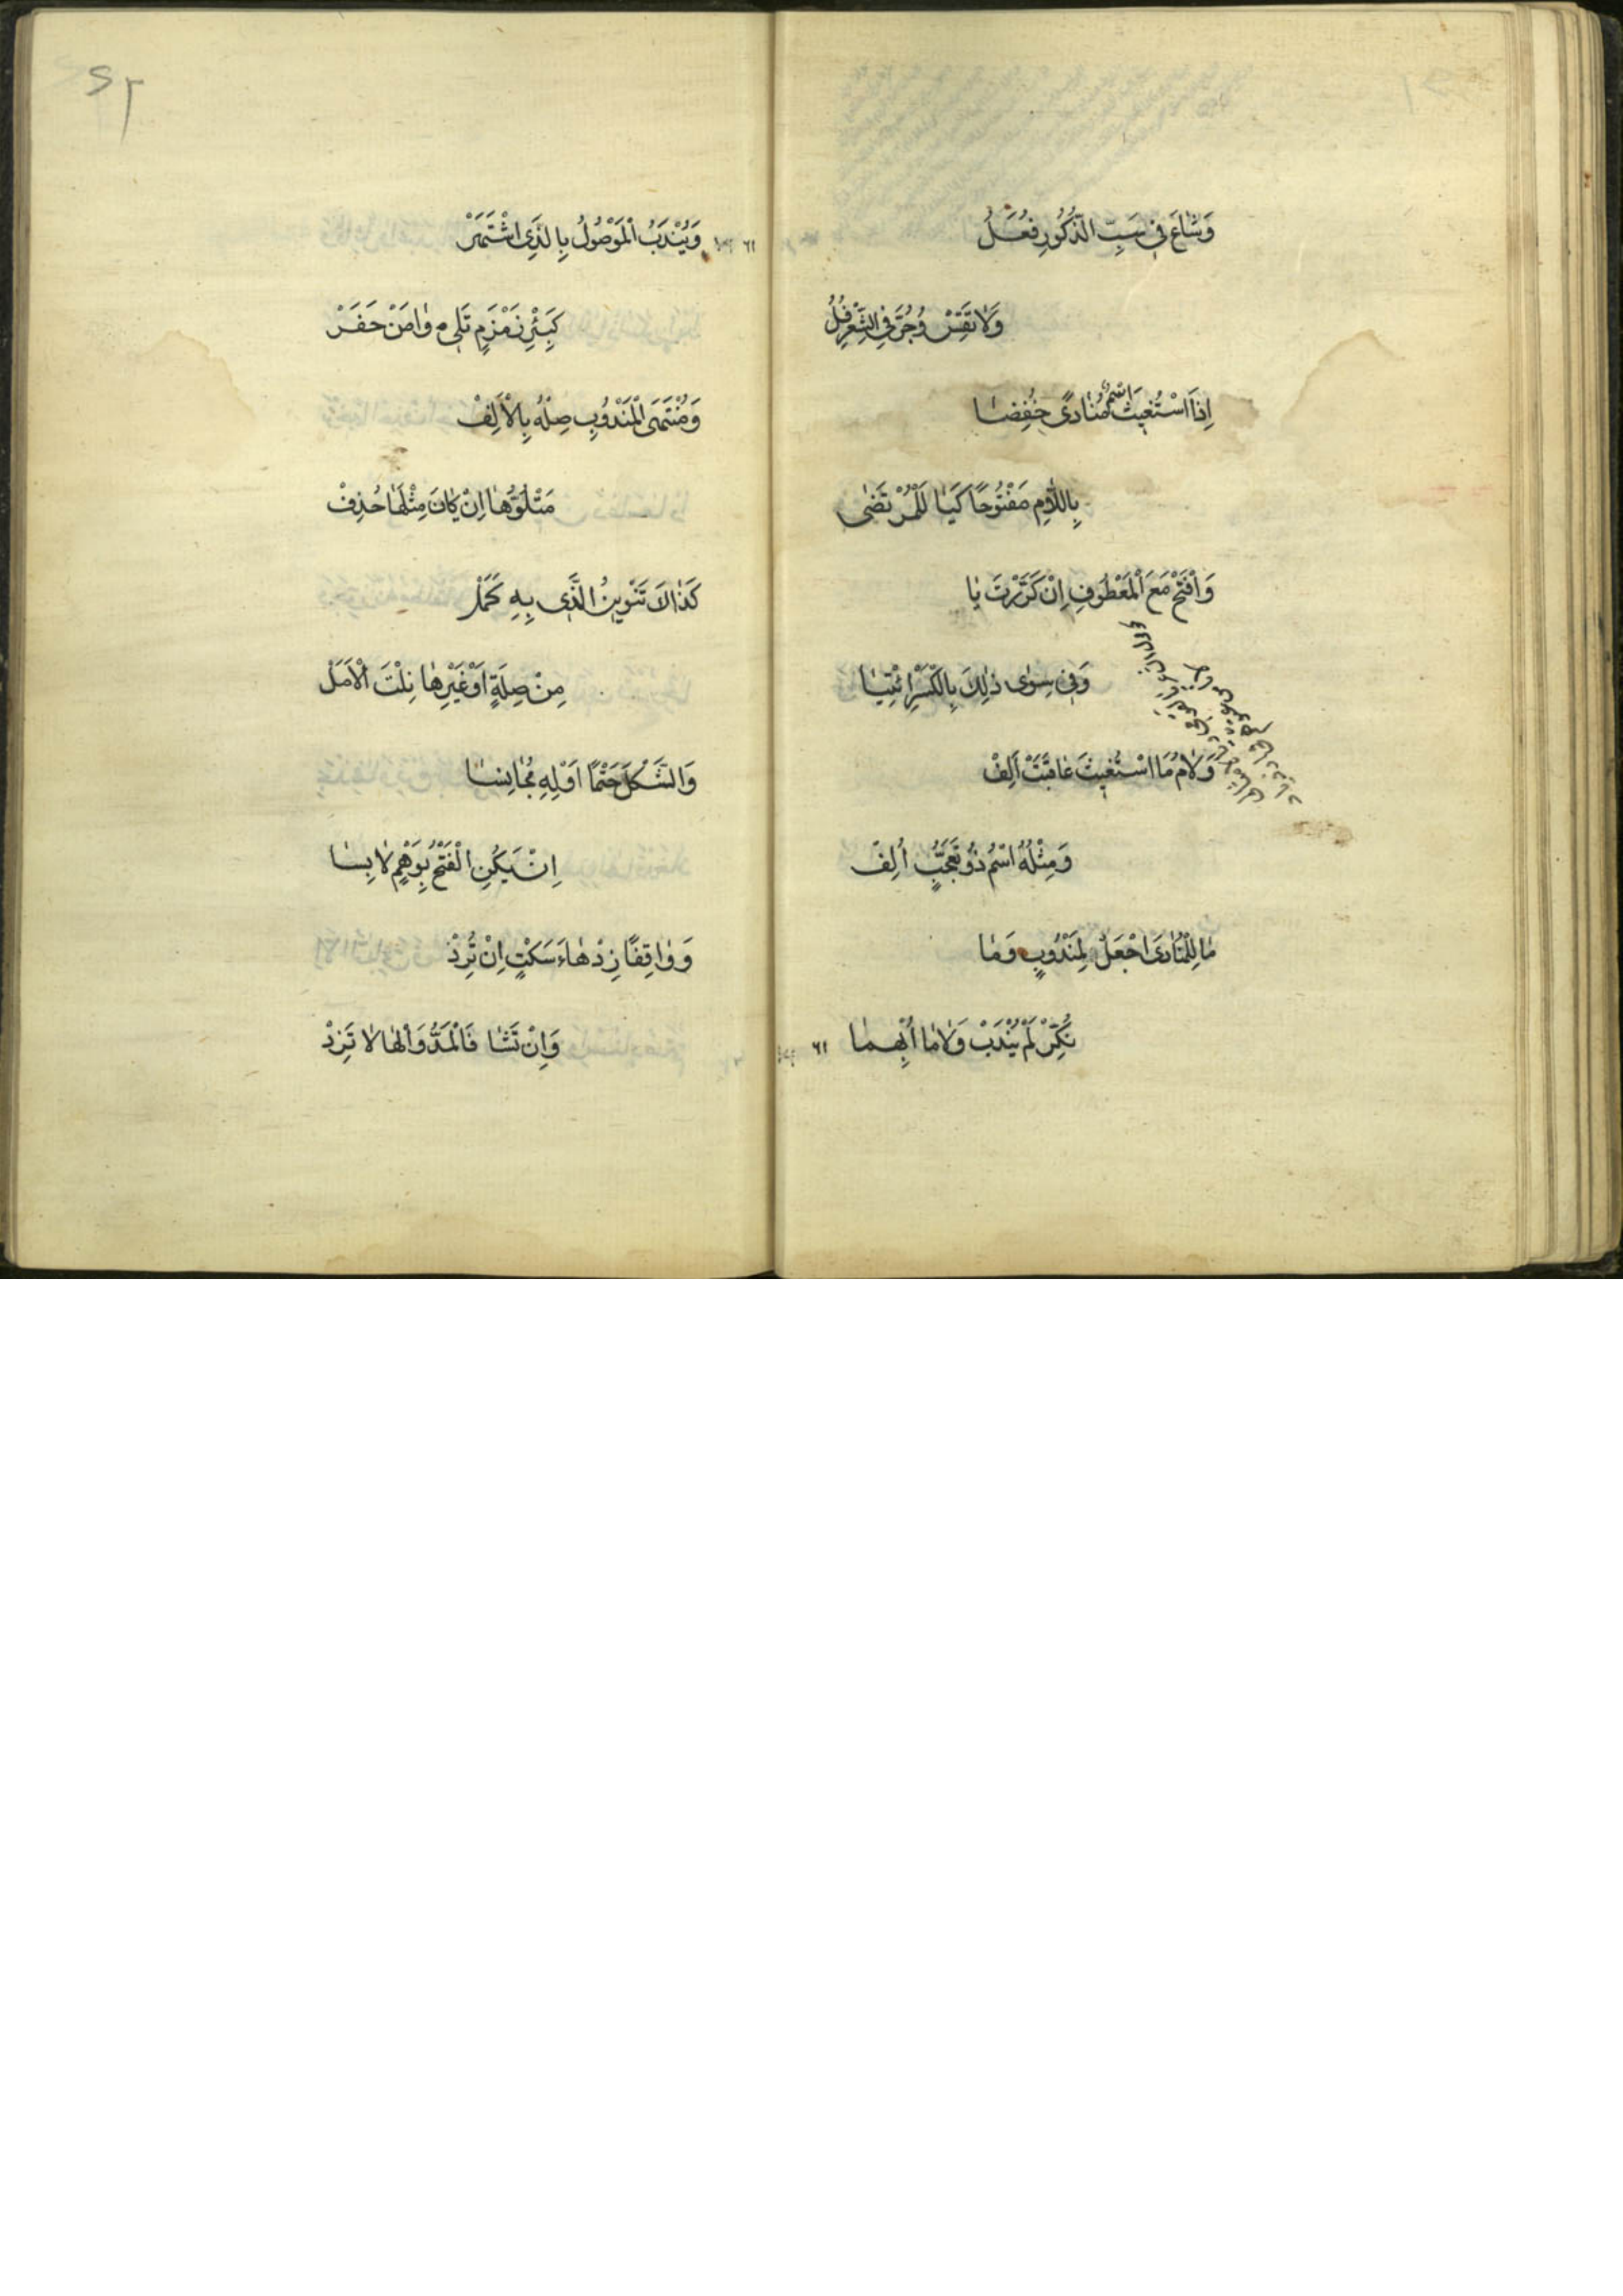 وَشَاعَ فِي سَبِّ الذُّكُورِ فُعَلُ
وَلَا تَقِسْ وَجُرَّ فِي الشِّعْرِ فُلُ
اِذَا اسْتُغِيثَ اسْمٌ مُنَادًى خُفِضَا
بِاللَّامِ مَفْتُوحًا كَيَا لَلْمُرْتَضٰى
وَافْتَحْ مَعَ الْمَعْطُوفِ اِنْ كَرَّرْتَ يَا
وَفِي سِوٰى ذٰلِكَ بِالْكَسْرِ ائْتِيَا
وَلَامُ مَا اسْتُغِيثَ عَاقَبَتْ اَلِفْ
وَمِثْلُهُ اسْمٌ ذُو تَعَجُّبٍ اُلِفْ
مَا لِلْمُنَادَى اجْعَلْ لِمَنْدُوبٍ وَمَا
نُكِّرَ لَمْ يُنْدَبْ وَلَا مَا اُبْهِمَا
٦١
٦١
وَيُنْدَبُ الْمَوْصُولُ بِالَّذِي اشْتَهَرْ
كَبِئْرِ زَمْزَمٍ تَلِي وَامَنْ حَفَرْ
وَمُنْتَهَى الْمَنْدُوبِ صِلْهُ بِالْاَلِفْ
مَتْلُوُّهَا اِنْ كَانَ مِثْلَهَا حُذِفْ
كَذَاكَ تَنْوِينُ الَّذِي بِهِ كَمَلْ
مِنْ صِلَةٍ اَوْ غَيْرِهَا نِلْتَ الْاَمَلْ
وَالشَّكْلَ حَتْمًا اَوْلِهِ مُجَانِسَا
اِنْ يَكُنِ الْفَتْحُ بِوَهْمٍ لَابِسَا
وَوَاقِفًا زِدْ هَاءَ سَكْتٍ اِنْ تُرِدْ
وَاِنْ تَشَا فَالْمَدَّ وَالْهَا لَا تَزِدْ